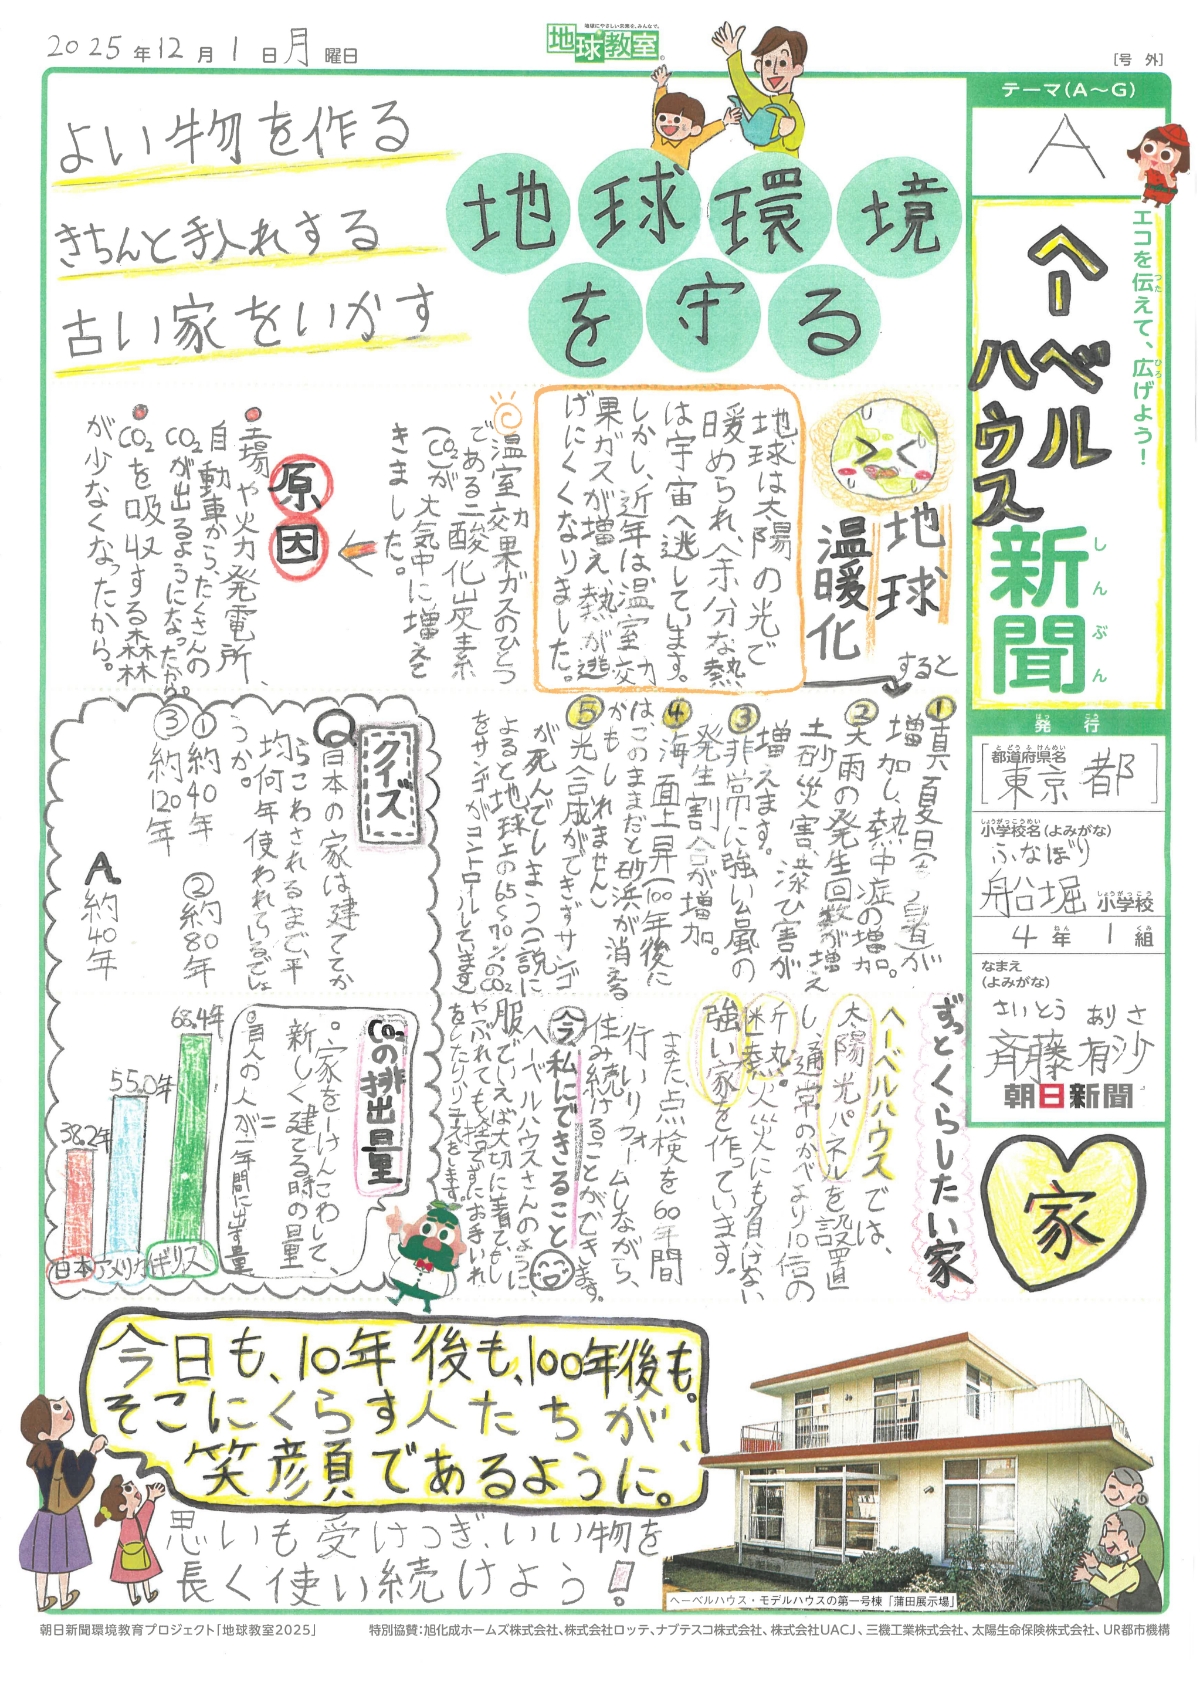 2025年12月1日月曜日
地球にやさしい未来を、みんなで。
地球教室
[号 外]
テーマ(A〜G)
A
エコを伝えて、広げよう!
ヘーベル
ハウス
新聞
しんぶん
発行
都道府県名
[東京都]
小学校名(よみがな)
ふなぼり
船堀小学校
4年1組
なまえ
(よみがな)
さいとう ありさ
斉藤 有沙
朝日新聞
よい物を作る
きちんと手入れする
古い家をいかす
地球環境
を守る
地球
温暖化
地球は太陽の光で
暖められ、余分な熱
は宇宙へ逃しています。
しかし、近年は温室効
果ガスが増え、熱が逃
げにくくなりました。
温室効果ガスのひとつ
である二酸化炭素
(CO₂)が大気中に増えて
きました。
原因
●工場や火力発電所、
自動車から、たくさんの
CO₂が出るようになったから。
●CO₂を吸収する森林
が少なくなったから。
すると
①真夏日
増加し、熱中症の増加。
②大雨の発生回数が増え
土砂災害、浸水害が
増えます。
③非常に強い台風の
発生割合が増加。
④海面上昇(100年後に
は、このままだと砂浜が消える
かもしれません)
⑤光合成ができずサンゴ
が死んでしまう(説に
よると地球上の65〜70%のCO₂
をサンゴがコントロールしています)
クイズ
Q日本の家は建ててか
らこわされるまで、平
均何年使われているでしょ
うか。
①約40年 ②約80年
③約120年
A.約40年
家
ずっとくらしたい家
ヘーベルハウスでは、
太陽光パネルを設置
し、通常のかべより10倍の
丈夫。火災にも負けない
強い家を作っています。
また点検を60年間
行いリフォームしながら、
住み続けることができます。
今私にできること
ヘーベルハウスさんのように、
服でいえば大切に着て、もし
やぶれても捨てずにお手いれ
をしたりリユースをします。
CO₂の排出量
○家を一けんこわして、
新しく建てる時の量
=
○百人の人が一年間に出す量
38.2年
55.0年
68.4年
日本
アメリカ
イギリス
今日も、10年後も、100年後も。
そこにくらす人たちが、
笑顔であるように。
思いも受けつぎ、いい物を
長く使い続けよう!
ヘーベルハウス・モデルハウスの第一号棟「蒲田展示場」
朝日新聞環境教育プロジェクト「地球教室2025」
特別協賛:旭化成ホームズ株式会社、株式会社ロッテ、ナブテスコ株式会社、株式会社UACJ、三機工業株式会社、太陽生命保険株式会社、UR都市機構